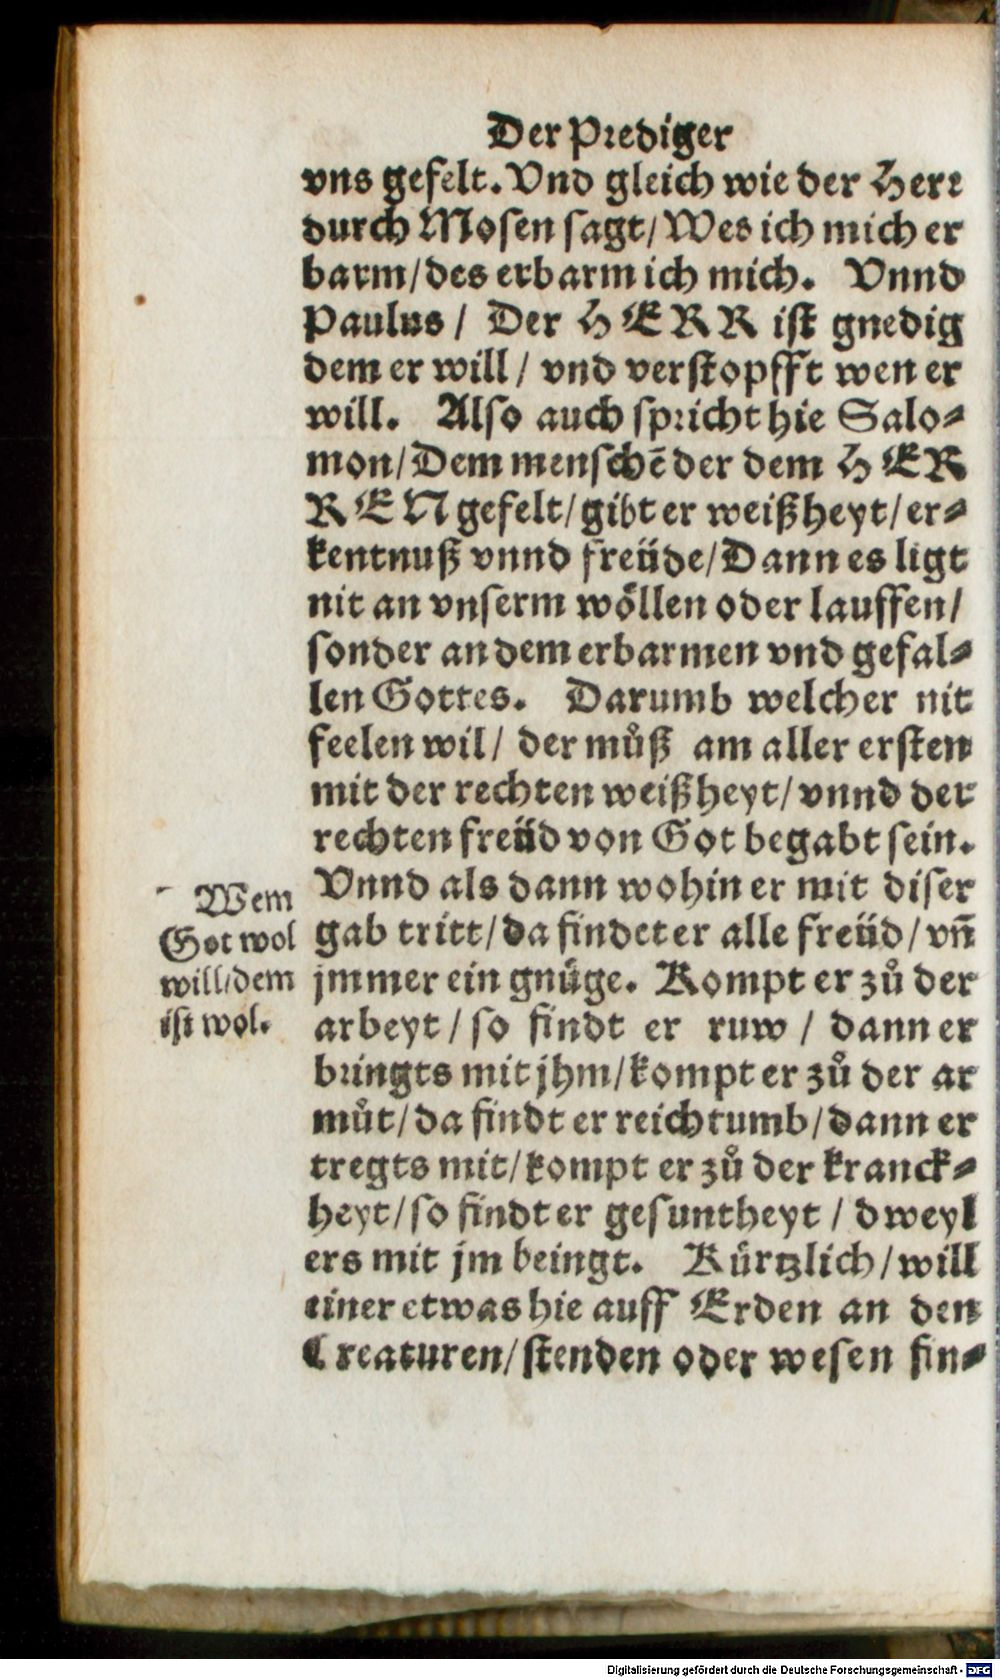 Der Prediger
vns gefelt. Vnd gleich wie der Herr
durch Mosen sagt/ Wes ich mich er
barm/ des erbarm ich mich. Vnnd
Paulus/ Der HERR ist gnedig
dem er will/ vnd verstopfft wen er
will. Also auch spricht hie Salo⸗
mon/ Dem menschē der dem HER
REN gefelt/ gibt er weißheyt/ er⸗
kentnuß vnnd freüde/ Dann es ligt
nit an vnserm wöllen oder lauffen/
sonder an dem erbarmen vnd gefal⸗
len Gottes. Darumb welcher nit
feelen wil/ der můß am aller ersten
mit der rechten weißheyt/ vnnd der
rechten freüd von Got begabt sein.
Vnnd als dann wohin er mit diser
gab tritt/ da findet er alle freüd/ vn̄
jmmer ein gnüge. Kompt er zů der
arbeyt/ so findt er ruw/ dann er
bringts mit jhm/ kompt er zů der ar
můt/ da findt er reichtumb/ dann er
tregts mit/ kompt er zů der kranck⸗
heyt/ so findt er gesuntheyt/ dweyl
ers mit jm beingt. Kürtzlich/ will
einer etwas hie auff Erden an den
Creaturen/ stenden oder wesen fin⸗
Wem
Got wol
will/ dem
ist wol.
Digitalisierung gefördert durch die Deutsche Forschungsgemeinschaft - DFG